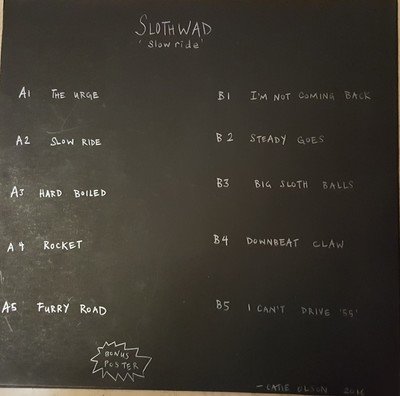 SLOTHWAD
'slow ride'
A1 THE URGE
A2 SLOW RIDE
A3 HARD BOILED
A4 ROCKET
A5 FURRY ROAD
BONUS
POSTER
B1 I'M NOT COMING BACK
B2 STEADY GOES
B3 BIG SLOTH BALLS
B4 DOWNBEAT CLAW
B5 I CAN'T DRIVE '55'
- CATIE OLSON